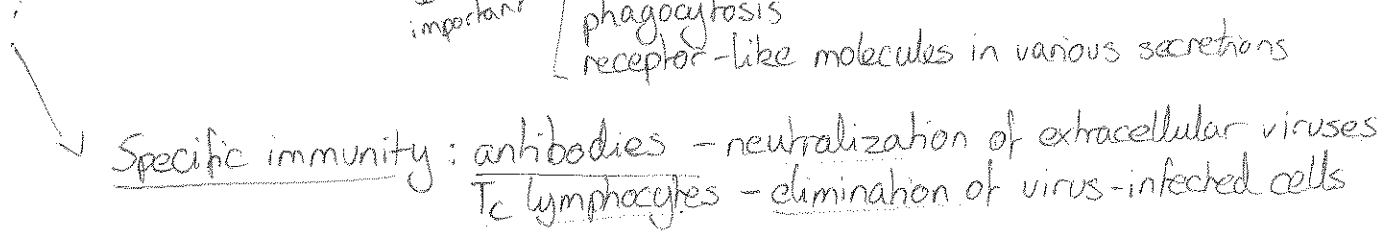 important phagocytosis
receptor-like molecules in various secretions
Specific immunity : antibodies - neutralization of extracellular viruses
Tc lymphocytes - elimination of virus-infected cells